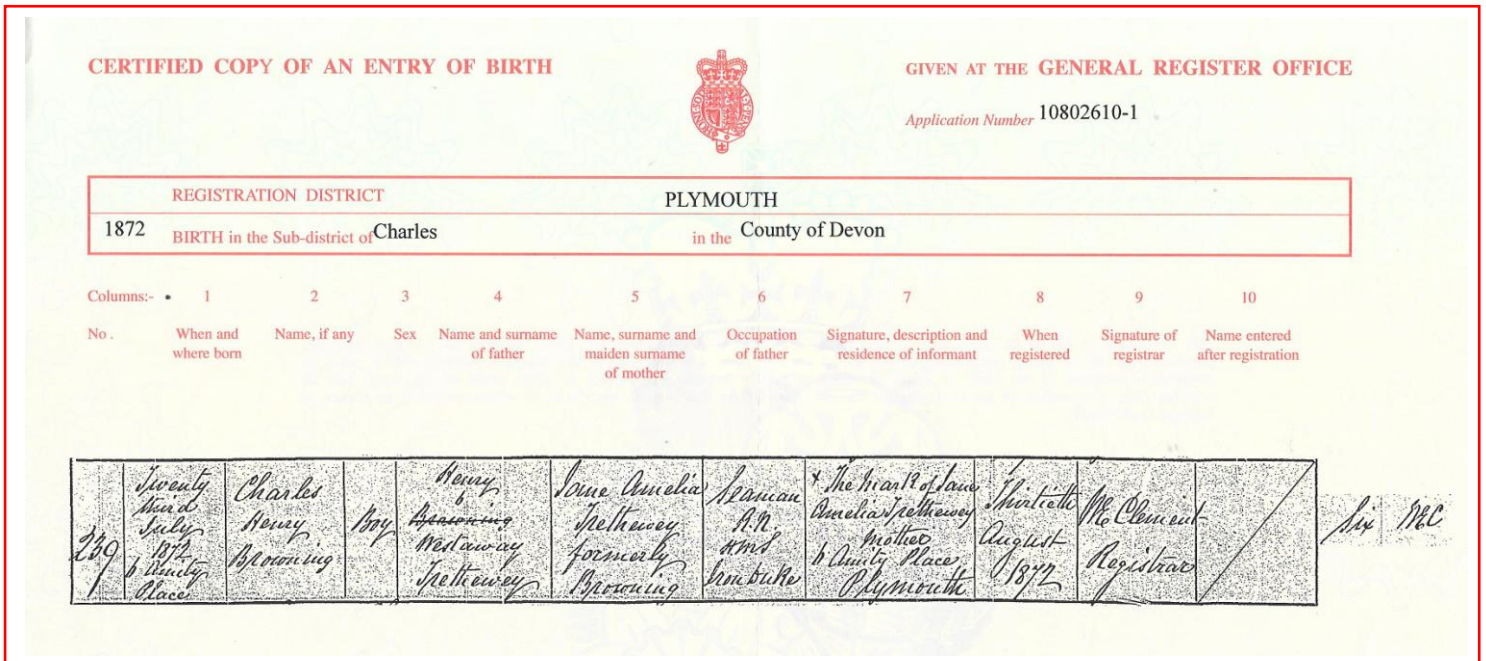 CERTIFIED COPY OF AN ENTRY OF BIRTH
GIVEN AT THE GENERAL REGISTER OFFICE
Application Number 10802610-1
REGISTRATION DISTRICT PLYMOUTH
1872 BIRTH in the Sub-district of Charles in the County of Devon
Columns:- 1 2 3 4 5 6 7 8 9 10
No. When and where born
Name, if any
Sex
Name and surname of father
Name, surname and maiden surname of mother
Occupation of father
Signature, description and residence of informant
When registered
Signature of registrar
Name entered after registration
239
Twenty
third
July
1872
6 Amity
Place
Charles
Henry
Browning
Boy
Henry
6
Browning
Westaway
Trethewey
Jane Amelia
Trethewey
formerly
Browning
Seaman
R.N.
HMS
Iron Duke
X The Mark of Jane
Amelia Trethewey
Mother
6 Amity Place
Plymouth
Thirtieth
August
1872
Clement
Registrar
Six